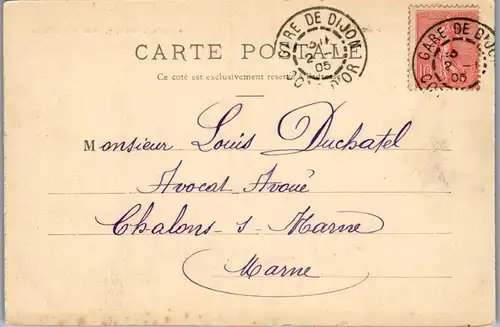 CARTE POSTALE
Ce côté est exclusivement
GARE DE DIJON
05
COTE D'OR
GARE DE DIJON
05
Monsieur Louis Duchatel
Avocat Avoué
Chalons-s-Marne
Marne